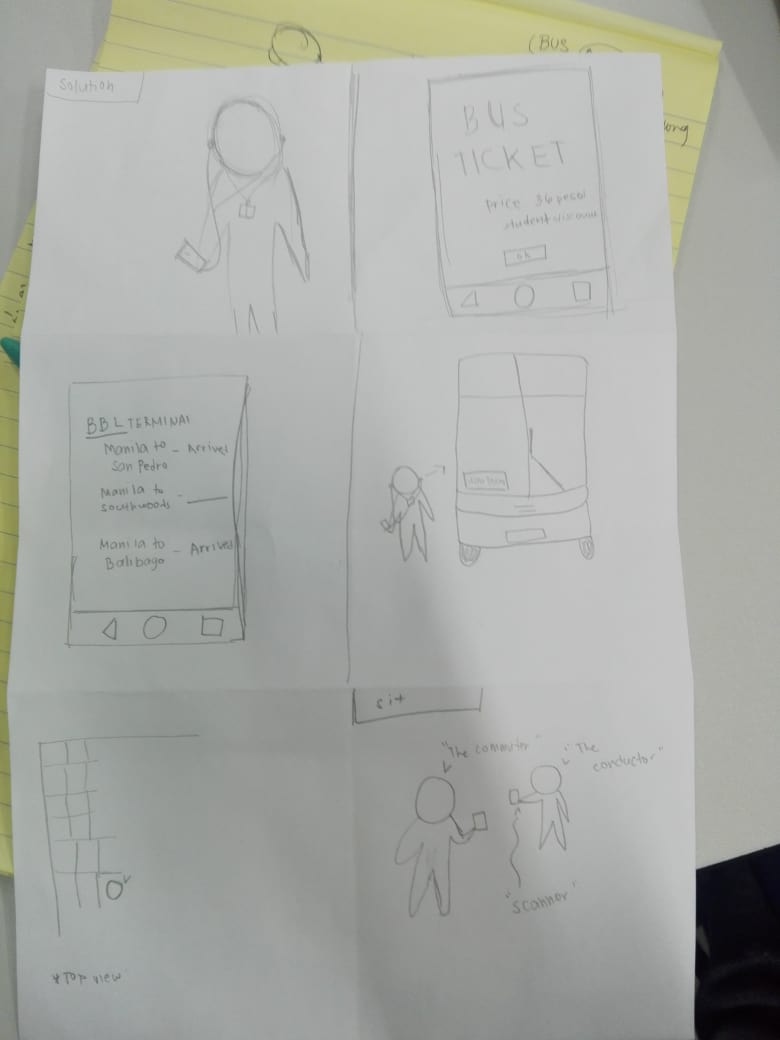 (BUS
Solution
ong
BUS
TICKET
price 36 pesos
student discount
ok
BBL TERMINAL
Manila to - Arrived
San Pedro
Manila to -
southwoods
Manila to - Arrived
Balibago
sit
"The commuter"
"The
conductor"
"scanner"
*Top view